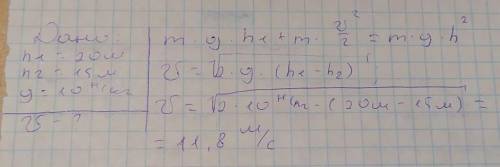 Дано:
h1 = 20м
h2 = 15м
g = 10 н/кг
v - ?
m · g · h1 + m · v²/2 = m · g · h²
v = √2 · g · (h1 - h2)
v = √2 · 10 н/кг · (20м - 15м) =
= 11,8 м/с